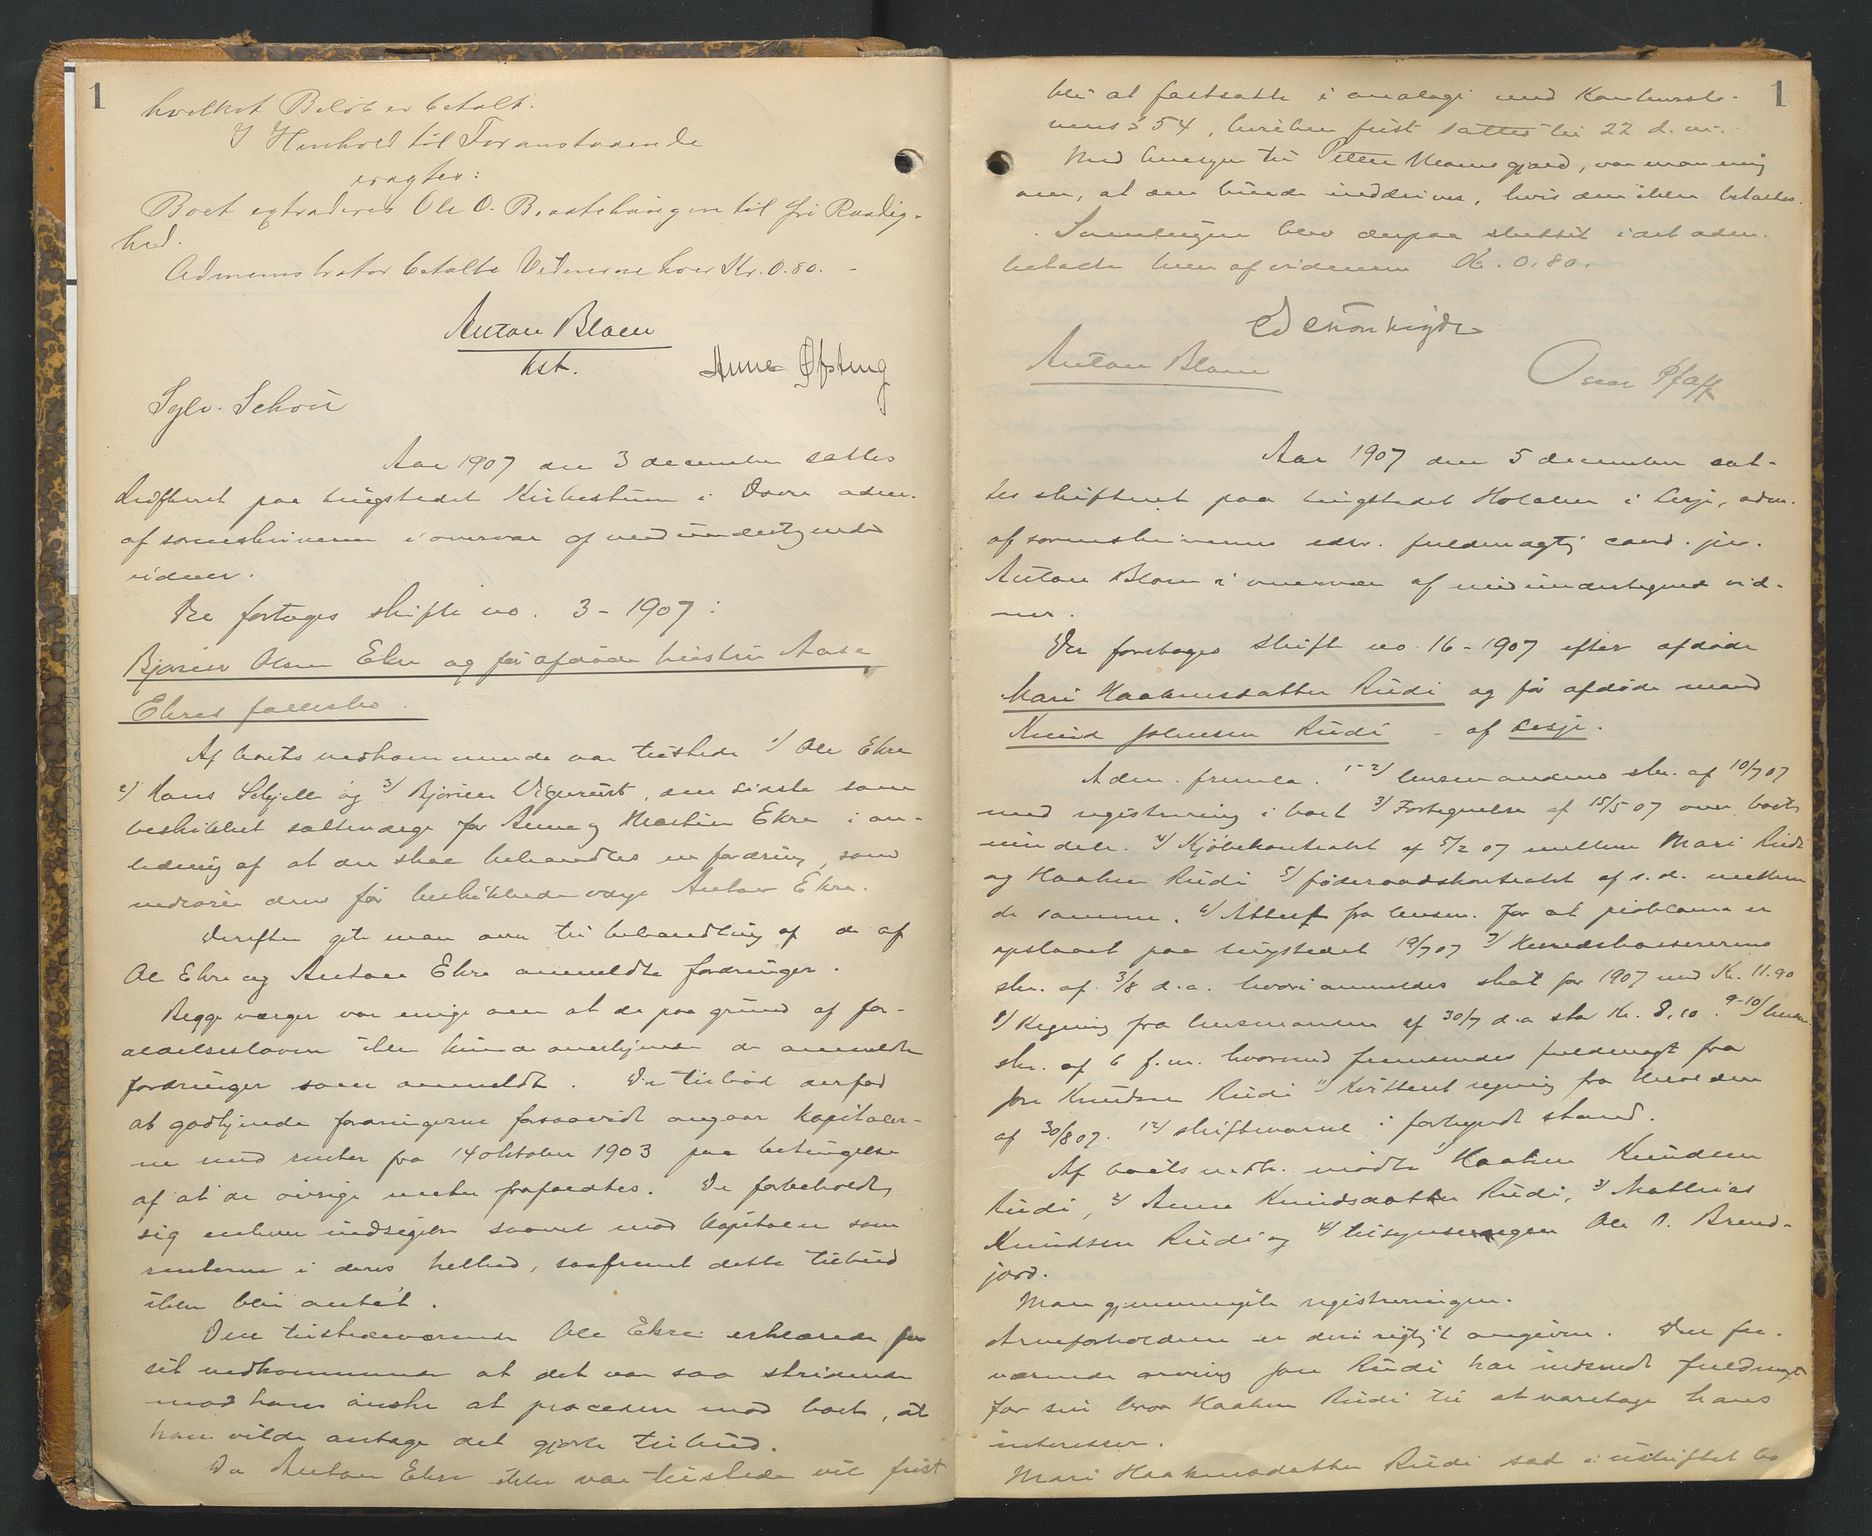 1
hvilket Beløb er betalt.
I Henhold til Foranstaaende
eragtes:
Boet extraderes Ole O. Braatehaugen til fri Raadig-
hed.
Administrator betalte Vidnerne hver Kr. 0.80. -
Anton Blom
kst.
Anne Øfsteng
Sylv. Schou
Aar 1907 den 3 december sattes
skifteret paa tingstedet Kirkestuen i Dovre adm.
af sorenskriveren i overvær af medundertegnede
vidner.
Der fortoges skifte no. 3 - 1907:
Bjørner Olsen Ekre og før afdøde hustru Aase
Ekres fællesbo.
Af boets vedkommende var tilstede 1/ Ole Ekre
2/ Hans Schjelle og 3/ Bjørner Vigerust, den sidste som
beskikket sætteværge for Anne og Martin Ekre i an-
ledning af at der skal behandles en fordring, som
vedrører den før beskikkede værge Anton Ekre.
Derefter gik man over til behandling af de af
Ole Ekre og Anton Ekre anmeldte fordringer.
Begge værger var enige om at de paa grund af for-
ældelsesloven ikke kunde anerkjende de anmeldte
fordringer som anmeldt. De tilbød derfor
at godkjende fordringerne forsaavidt angaar kapitaler-
ne med renter fra 14 oktober 1903 paa betingelse
af at de øvrige renter frafaldtes. De forbeholdt
sig enhver indsigelse saavel mod kapitalen som
renterne i deres helhed, saafremt dette tilbud
ikke blir antat.
Den tilstedeværende Ole Ekre erklærede for
sit vedkommende at det var saa stridende
mod hans ønske at procedere mod boet, at
han vilde antage det gjorte tilbud.
Da Anton Ekre ikke var tilstede vil frist
1
bli at fastsætte i analogi med Konkurslo-
vens § 54, hvilken frist sattes til 22 d. m.
Med hensyn til Petter gjæld, var man enig
om, at den burde inddrives, hvis den ikke betaltes.
Samlingen blev derpaa sluttet idet adm.
betalte hver af vidnerne Kr. 0.80.
Anton Blom
Oscar Pfaff
Aar 1907 den 5 december sat-
tes skifteret paa tingstedet Holaker i Lesje, adm.
af sorenskriverens edsv. fuldmægtig cand. jur.
Anton Blom i overvær af medundertegnede vid-
ner.
Der foretoges skifte no. 16 - 1907 efter afdøde
Mari Haakensdatter Rudi og før afdøde mand
Knud Johnsen Rudi - af Lesje.
Adm. fremla. 1-2/ lensmandens skr. af 10/7 07
med registrering i boet 3/ Fortegnelse af 15/5 07 over boets
eiendele. 4/ Kjøbekontrakt af 5/2 07 mellem Mari Rudi
og Haaken Rudi 5/ føderaadskontrakt af s. d. mellem
de samme. 6/ Attest fra lensm. for at proklama er
opslaaet paa tingstedet 19/7 07 7/ Herredskassererens
skr. af 3/8 d. a. hvori anmeldes skat for 1907 med Kr. 11.90
8/ Regning fra lensmanden af 30/7 d. a. stor Kr. 8,10. 9-10/ lensm.
skr. af 6 f. m. hvormed fremsendes fuldmagt fra
Jon Knudsen Rudi 11/ Kvitteret regning fra
af 30/8 07. 12/ skifteforvarsel i forkyndt stand.
Af boets vedk. mødte 1/ Haaken Knudsen
Rudi, 2/ Anne Knudsdatter Rudi, 3/ Mathias
Knudsen Rudi og 4/ tilsynsværgen Ole O. Brend-
jord.
Man gjennemgik registreringen.
Arveforholdene er deri rigtigt angivne. Den fra-
værende arving Jon Rudi har indsendt fuldmagt
for sin bror Haaken Rudi til at varetage hans
interesser.
Mari Haakensdatter Rudi sad i uskiftet bo